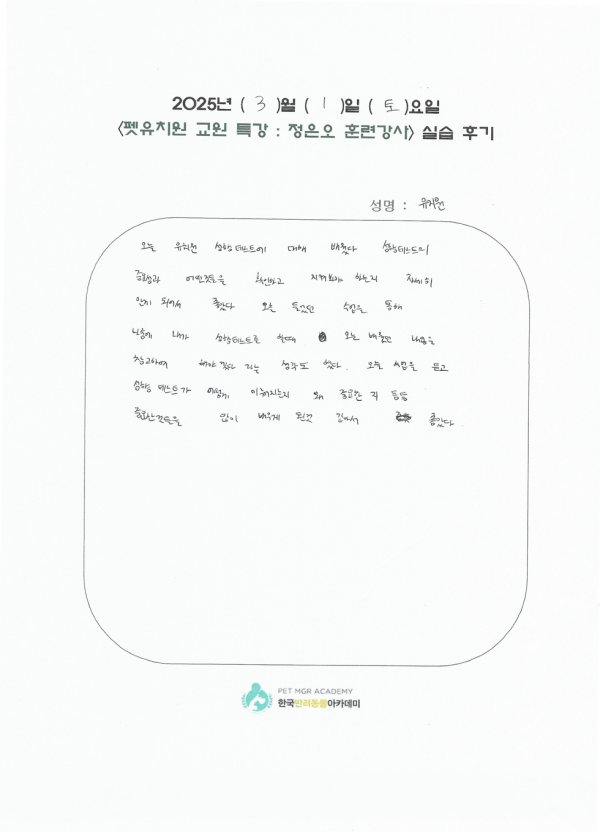 2025년 ( 3 )월 ( 1 )일 ( 토 )요일
<펫유치원 교원 특강 : 정은오 훈련강사> 실습 후기
성명 : 유지원
오늘 유치원 성향테스트에 대해 배웠다 성향테스트의
중요성과 어떤것들을 확인하고 지켜봐야 하는지 자세히
알게 되어서 좋았다 오늘 들었던 수업을 통해
나중에 내가 성향테스트를 할때 오늘 배웠던 내용을
참고하여 해야 겠다 라는 생각도 했다. 오늘 수업을 듣고
성향 테스트가 어떻게 이루어지는지 왜 중요한 지 등등
중요한것들을 많이 배우게 된것 같아서 좋았다.
PET MGR ACADEMY
한국반려동물아카데미